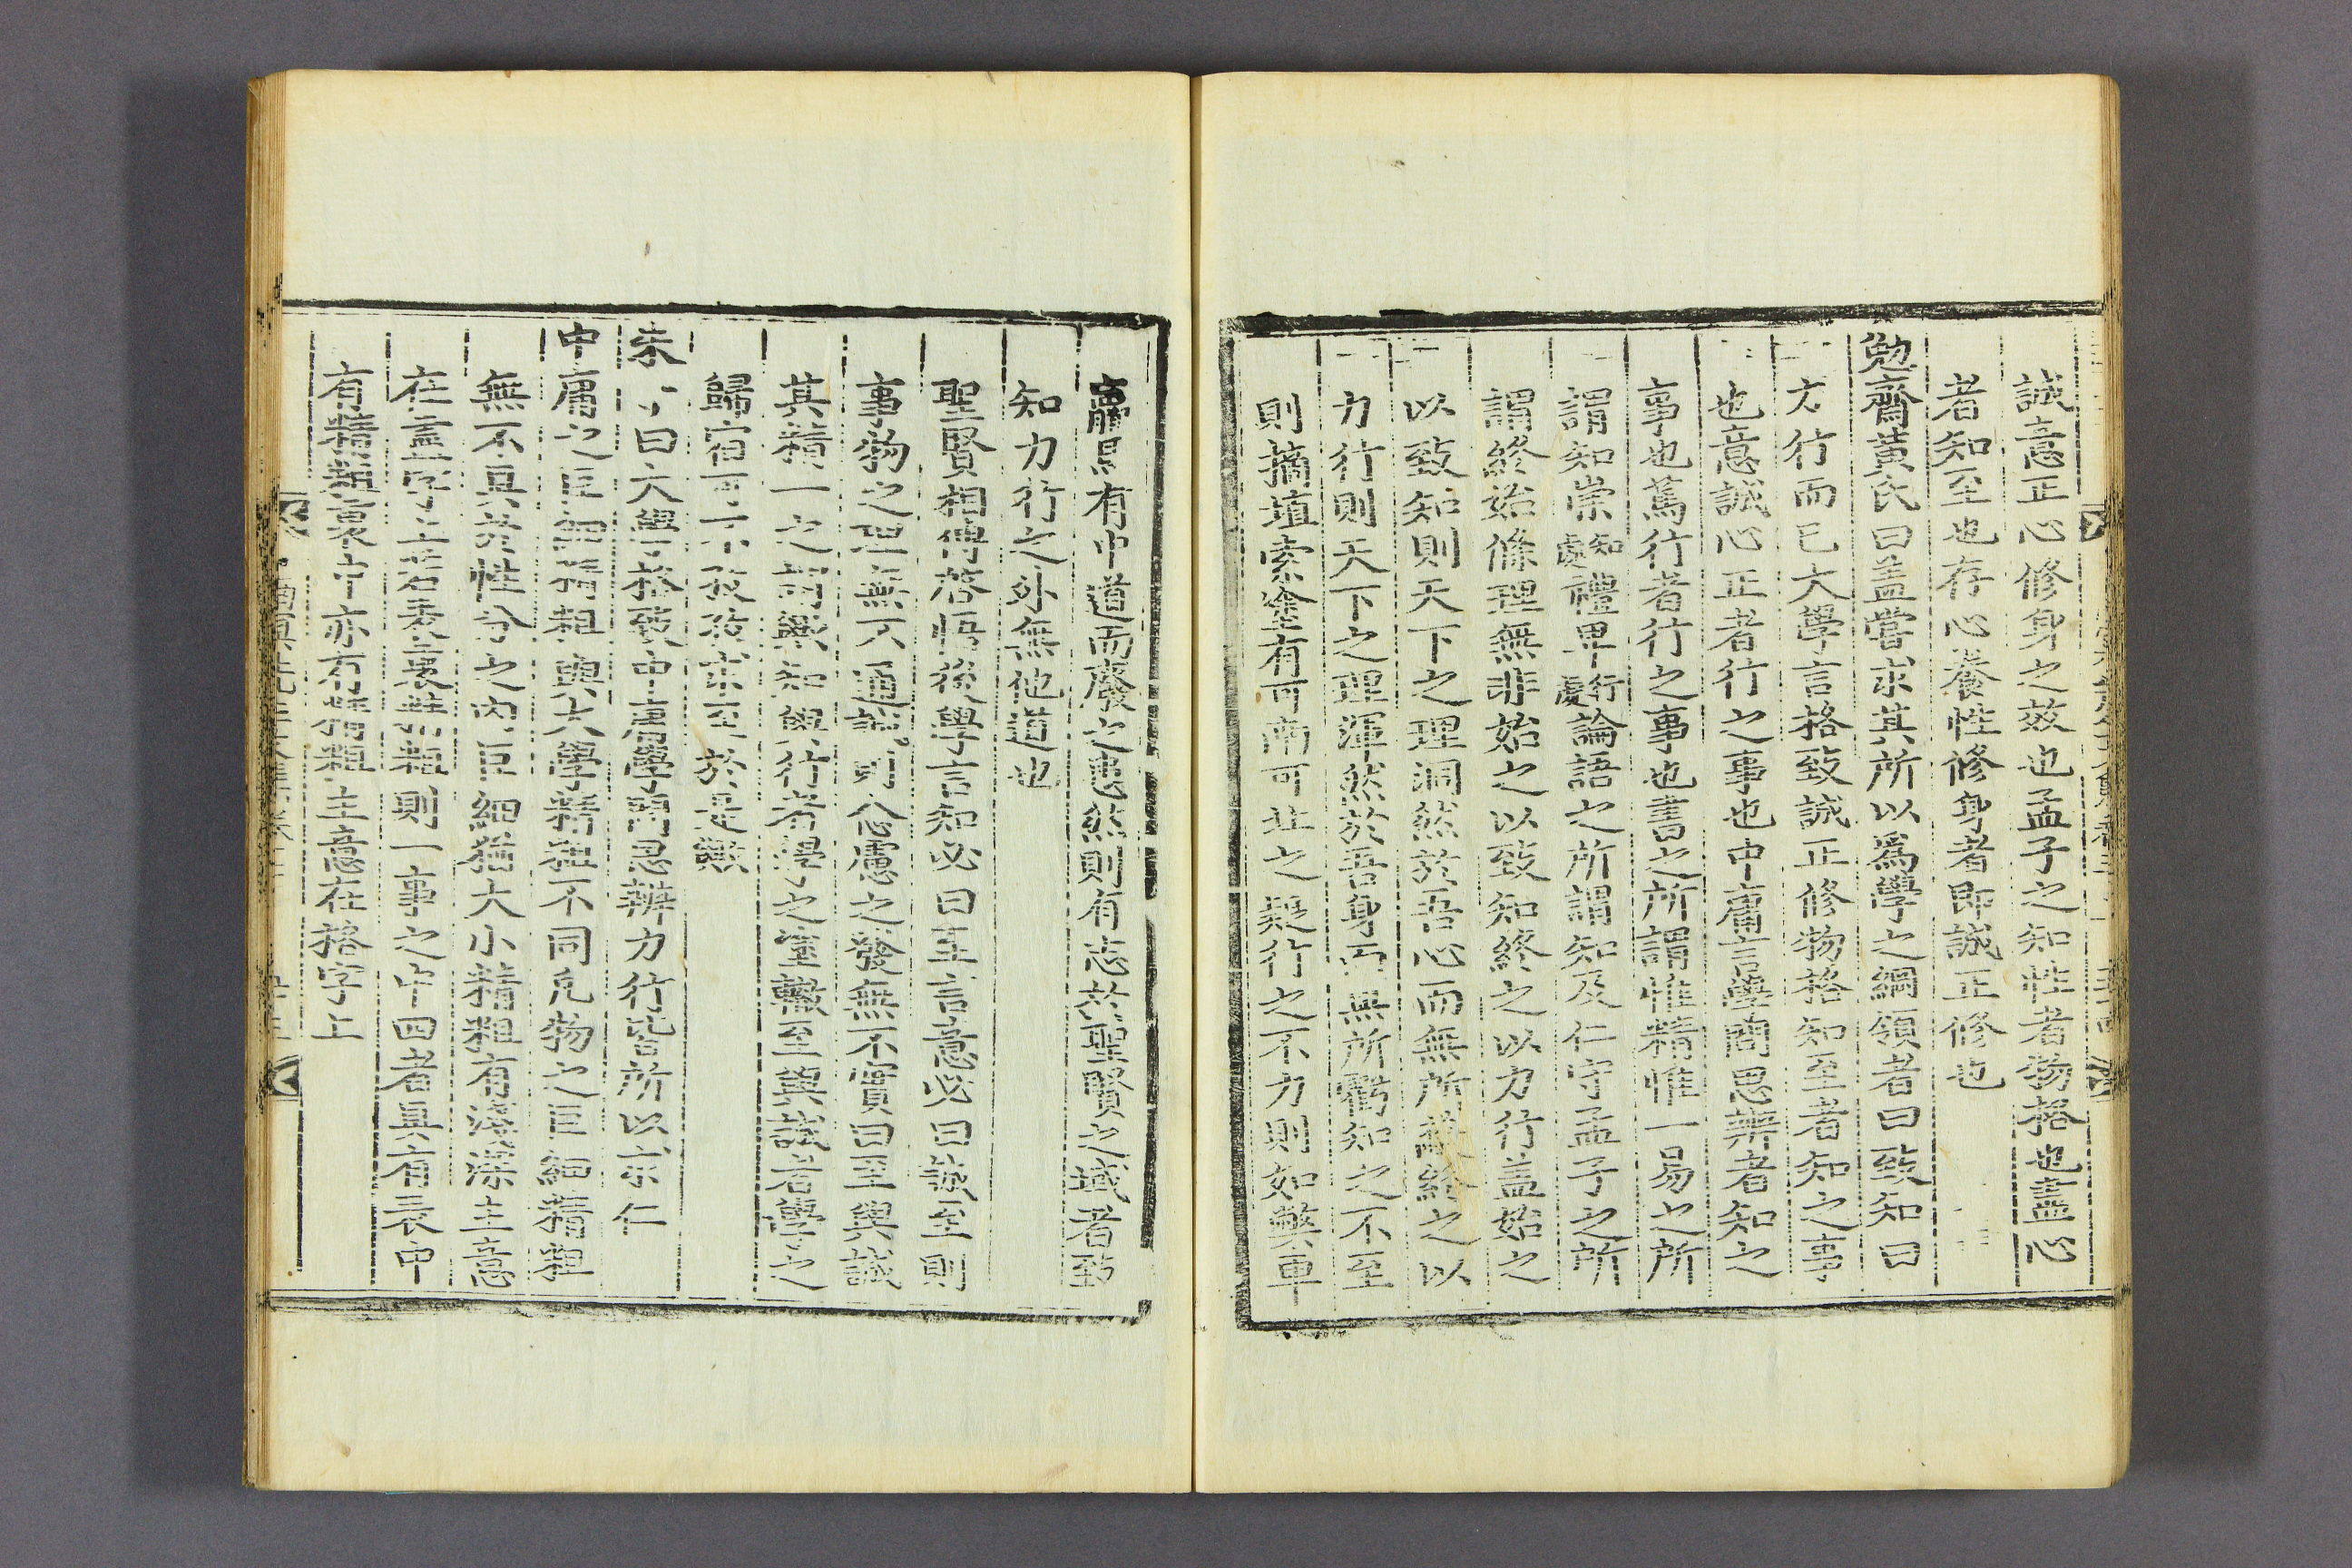 誠意正心修身之效也孟子之知性者物格也盡心
者知至也存心養性修身者即誠正修也
勉齋黃氏曰盖嘗求其所以爲學之綱領者曰致知曰
力行而已大學言格致誠正修物格知至者知之事
也意誠心正者行之事也中庸言學問思辨者知之
事也篤行者行之事也書之所謂惟精惟一易之所
謂知崇知處禮卑行處論語之所謂知及仁守孟子之所
謂終始條理無非始之以致知終之以力行盖始之
以致知則天下之理洞然於吾心而無所蔽終之以
力行則天下之理渾然於吾身而無所虧知之不至
則摘埴索塗有可南可北之疑行之不力則如弊車
羸馬有中道而廢之患然則有志於聖賢之域者致
知力行之外無他道也
聖賢相傳啓悟後學言知必曰至言意必曰誠至則
事物之理無不通誠則念慮之發無不實曰至與誠
其精一之謂歟知與行者學之塗轍至與誠者學之
歸宿可不孜孜求至於是歟
朱子曰大學格致中庸學問思辨力行皆所以求仁
中庸之巨細精粗與大學精粗不同凡物之巨細精粗
無不具於性分之內巨細猶大小精粗有淺深主意
在盡字上若表裏精粗則一事之中四者具有表中
有精粗裏中亦有精粗主意在格字上